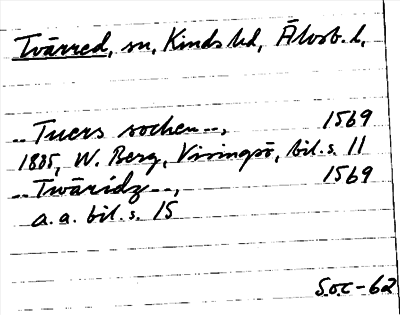 Tvärred, sn, Kinds hd, Älvsb. l,
.. Tuers sochen .., 1569
1885, W. Berg, Visingsö, bil. s. 11
.. Twäridz .., 1569
a. a. bil. s. 15
Soc-62